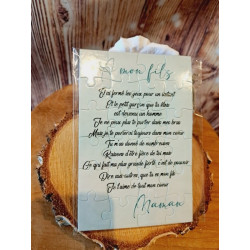 A mon fils
J'ai fermé les yeux pour un instant
Et le petit garçon que tu étais
est devenu un homme
Je ne peux plus te porter dans mes bras
Mais je te porterai toujours dans mon cœur
Tu m'as donné de nombreuses
Raisons d'être fière de toi mais
Ce qui fait ma plus grande fierté, c'est de pouvoir
Dire aux autres, que tu es mon fils
Je t'aime de tout mon cœur
Maman